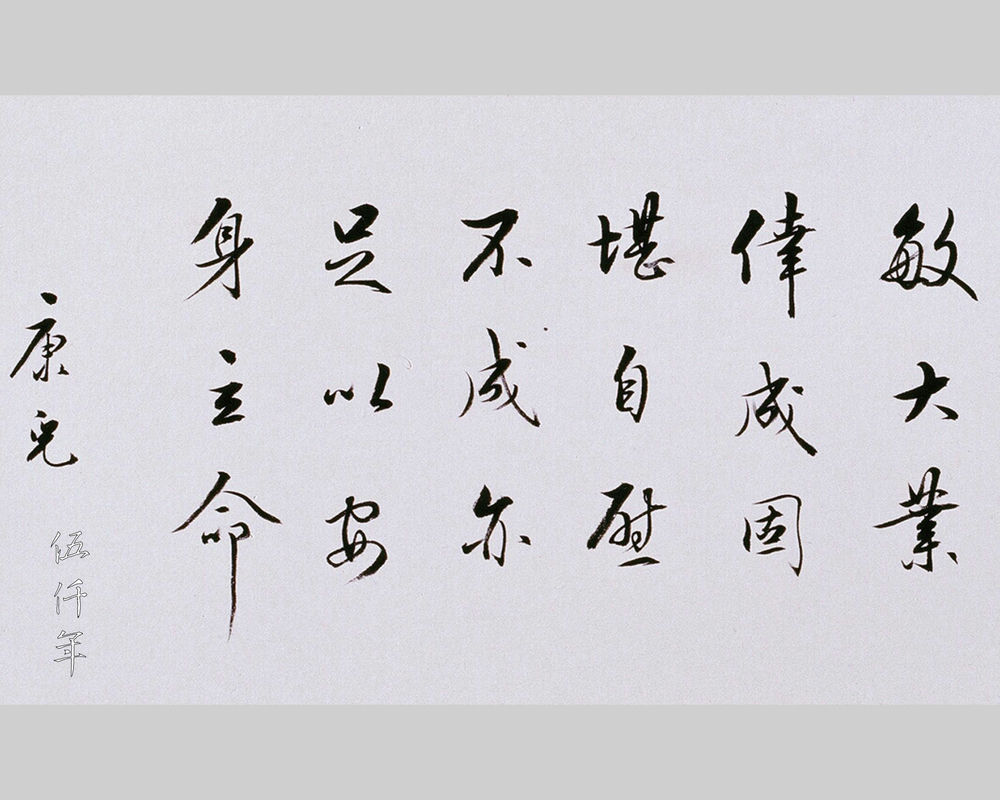 敏大業
偉成固
堪自慰
不成亦
足以安
身立命
康兒
伍仟年